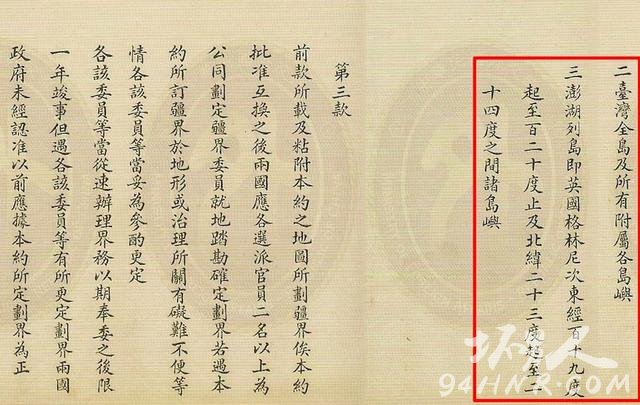 二臺灣全島及所有附屬各島嶼
三澎湖列島即英國格林尼次東經百十九度
起至百二十度止及北緯二十三度起至二
十四度之間諸島嶼
第三款
前款所載及粘附本約之地圖所劃疆界俟本約
批准互換之後兩國應各選派官員二名以上為
公同劃定疆界委員就地踏勘確定劃界若遇本
約所訂疆界於地形或治理所關有礙難不便等
情各該委員等當妥為參酌更定
各該委員等當從速辦理界務以期奉委之後限
一年竣事但遇各該委員等有所更定劃界兩國
政府未經認准以前應據本約所定劃界為正
坏人
94HNR.COM